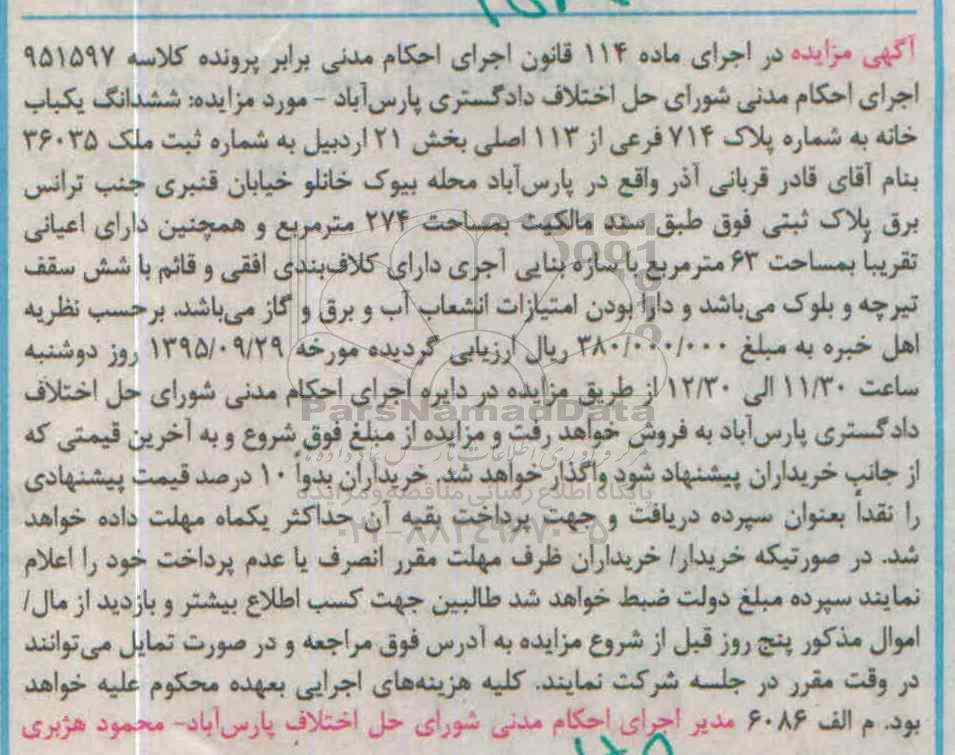 آگهی مزایده در اجرای ماده ۱۱۴ قانون اجرای احکام مدنی برابر پرونده کلاسه ۹۵۱۵۹۷
اجرای احکام مدنی شورای حل اختلاف دادگستری پارس‌آباد - مورد مزایده: ششدانگ یکباب
خانه به شماره پلاک ۷۱۴ فرعی از ۱۱۳ اصلی بخش ۲۱ اردبیل به شماره ثبت ملک ۳۶۰۳۵
بنام آقای قادر قربانی آذر واقع در پارس‌آباد محله بیوک خانلو خیابان قنبری جنب ترانس
برق پلاک ثبتی فوق طبق سند مالکیت بمساحت ۲۷۴ مترمربع و همچنین دارای اعیانی
تقریباً بمساحت ۶۳ مترمربع با سازه بنایی آجری دارای کلاف‌بندی افقی و قائم با شش سقف
تیرچه و بلوک می‌باشد و دارا بودن امتیازات انشعاب آب و برق و گاز می‌باشد. برحسب نظریه
اهل خبره به مبلغ ۳۸۰/۰۰۰/۰۰۰ ریال ارزیابی گردیده مورخه ۱۳۹۵/۰۹/۲۹ روز دوشنبه
ساعت ۱۱/۳۰ الی ۱۲/۳۰ از طریق مزایده در دایره اجرای احکام مدنی شورای حل اختلاف
ParsNamadData
دادگستری پارس‌آباد به فروش خواهد رفت و مزایده از مبلغ فوق شروع و به آخرین قیمتی که
از جانب خریداران پیشنهاد شود واگذار خواهد شد. خریداران بدواً ۱۰ درصد قیمت پیشنهادی
پایگاه اطلاع رسانی مناقصه و مزایده
را نقداً بعنوان سپرده دریافت و جهت پرداخت بقیه آن حداکثر یکماه مهلت داده خواهد
۰۲۱-۸۸۳۴۹۶۷۰-۵
شد. در صورتیکه خریدار/ خریداران ظرف مهلت مقرر انصرف یا عدم پرداخت خود را اعلام
نمایند سپرده مبلغ دولت ضبط خواهد شد طالبین جهت کسب اطلاع بیشتر و بازدید از مال/
اموال مذکور پنج روز قبل از شروع مزایده به آدرس فوق مراجعه و در صورت تمایل می‌توانند
در وقت مقرر در جلسه شرکت نمایند. کلیه هزینه‌های اجرایی بعهده محکوم علیه خواهد
بود. م الف ۶۰۸۶ مدیر اجرای احکام مدنی شورای حل اختلاف پارس‌آباد- محمود هژبری